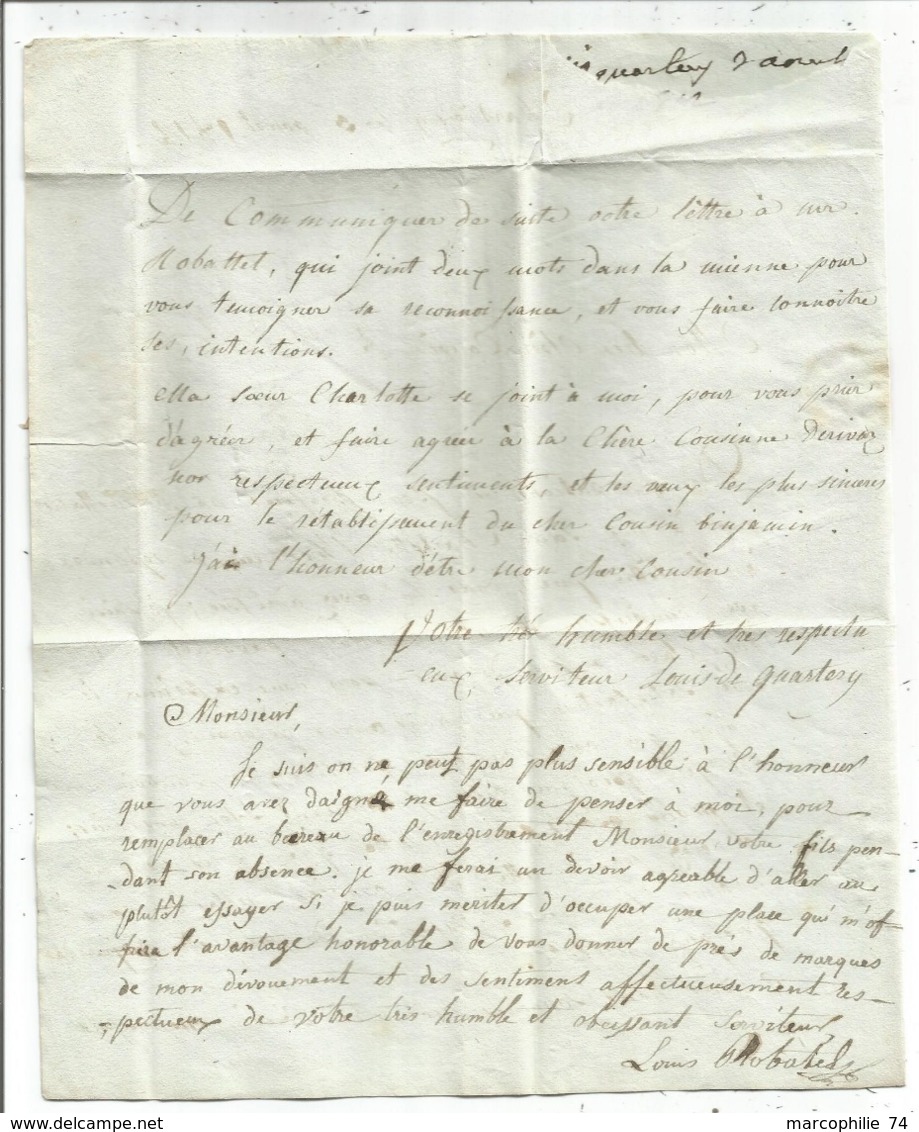 quartery 2 aout
De Communiquer de suite votre lèttre à mr.
Robattel, qui joint deux mots dans la mienne pour
vous temoigner sa reconnoissance, et vous faire connoitre
ses, intentions.
Ma sœur Charlotte se joint à moi, pour vous prier
d'agréer, et faire agréer à la Chère Cousinne Derivaz
nos respectueux sentiments, et les vœux les plus sinceres
pour le rétablissement du cher Cousin binjamin.
J'ai l'honneur d'étre mon cher Cousin
Votre trés humble et tres respectu
eux, serviteur Louis de Quartery
Monsieur,
Je suis on ne peut pas plus sensible à l'honneur
que vous avez daigné me faire de penser à moi, pour
remplacer au bureau de l'enregistrement Monsieur votre fils pen-
-dant son absence. je me ferai un devoir agreable d'aller au
plutôt essayer si je puis meriter d'occuper une place qui m'of-
frira l'avantage honorable de vous donner de prés de marques
de mon dévouement et des sentimens affectueusement res-
-pectueux de votre très humble et obeissant serviteur
Louis Robatel
marcophilie 74